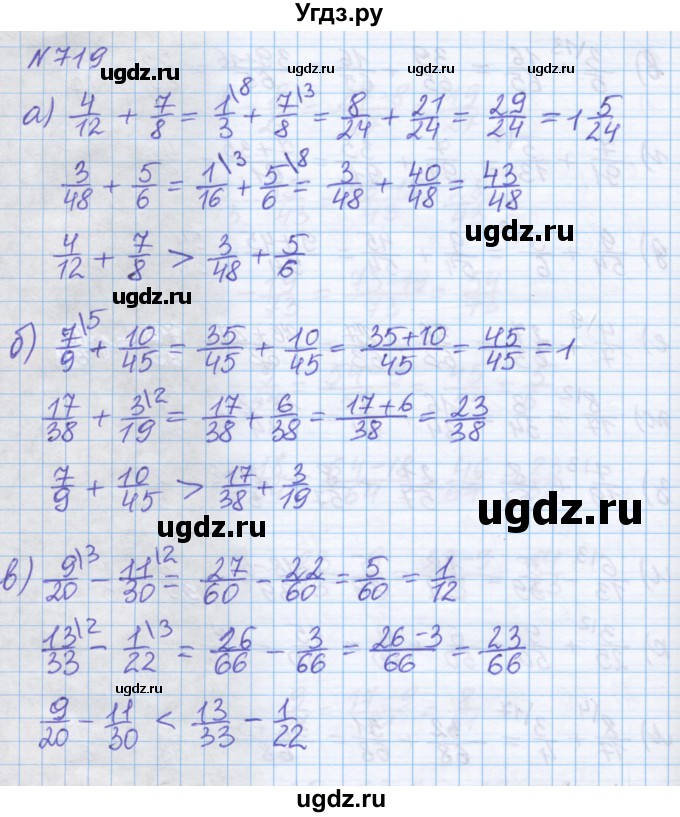 Угдз.ру
№719
ugdz.ru ugdz.ru ugdz.ru
а) 4/12 + 7/8 = 1\8/3 + 7\3/8 = 8/24 + 21/24 = 29/24 = 1 5/24
3/48 + 5/6 = 1\3/16 + 5\8/6 = 3/48 + 40/48 = 43/48
ugdz.ru
4/12 + 7/8 > 3/48 + 5/6
ugdz.ru
б) 7\5/9 + 10/45 = 35/45 + 10/45 = 35+10/45 = 45/45 = 1
17/38 + 3\2/19 = 17/38 + 6/38 = 17+6/38 = 23/38
7/9 + 10/45 > 17/38 + 3/19
ugdz.ru
ugdz.ru
в) 9\3/20 - 11\2/30 = 27/60 - 22/60 = 5/60 = 1/12
13\2/33 - 1\3/22 = 26/66 - 3/66 = 26-3/66 = 23/66
ugdz.ru
9/20 - 11/30 < 13/33 - 1/22
ugdz.ru